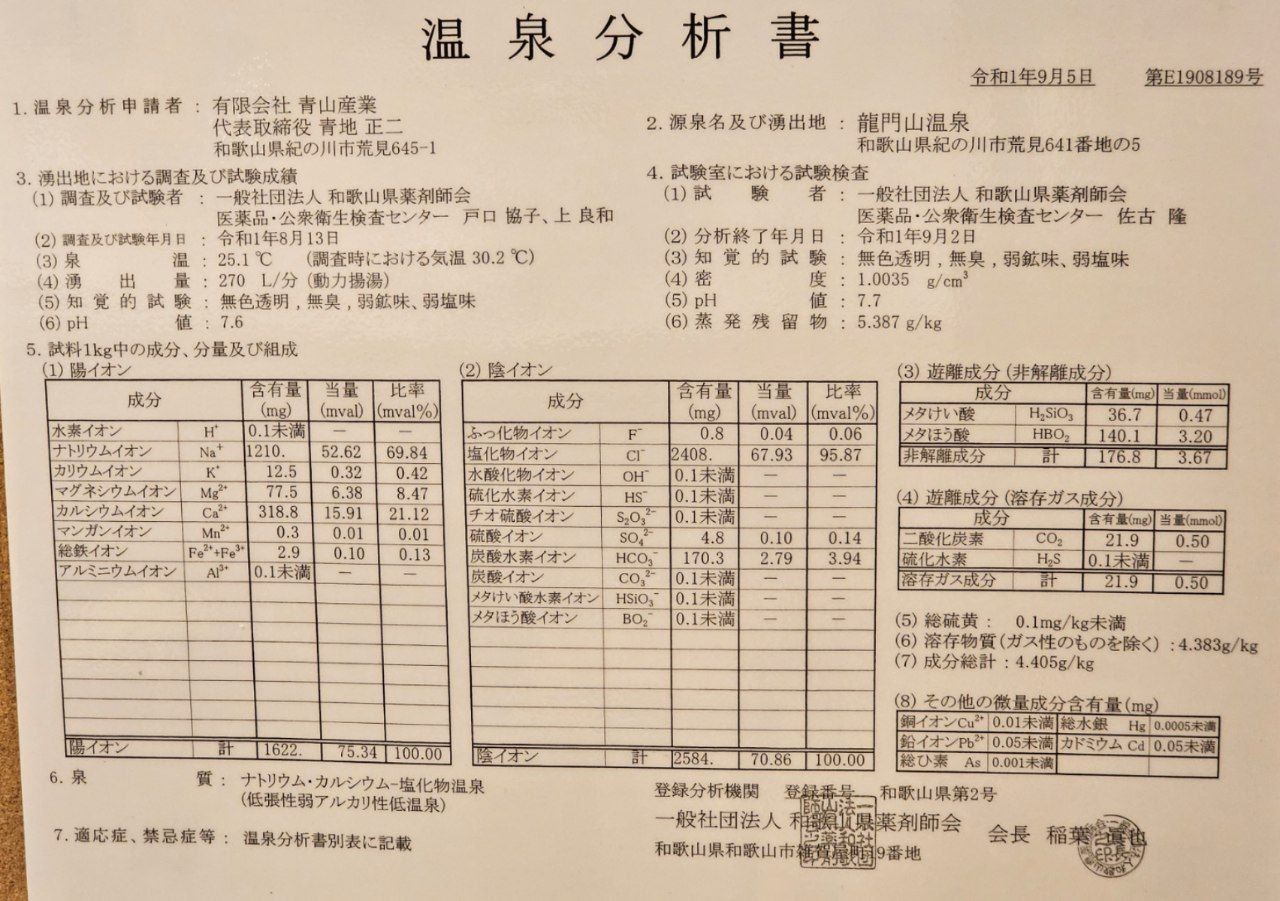 温泉分析書
令和1年9月5日 第E1908189号
1. 温泉分析申請者 : 有限会社 青山産業
代表取締役 青地 正二
和歌山県紀の川市荒見645-1
2. 源泉名及び湧出地 : 龍門山温泉
和歌山県紀の川市荒見641番地の5
3. 湧出地における調査及び試験成績
(1) 調査及び試験者 : 一般社団法人 和歌山県薬剤師会
医薬品・公衆衛生検査センター 戸口 協子、上 良和
(2) 調査及び試験年月日 : 令和1年8月13日
(3) 泉温 : 25.1 ℃ (調査時における気温 30.2 ℃)
(4) 湧出量 : 270 L/分 (動力揚湯)
(5) 知覚的試験 : 無色透明 , 無臭 , 弱鉱味、弱塩味
(6) pH値 : 7.6
4. 試験室における試験検査
(1) 試験者 : 一般社団法人 和歌山県薬剤師会
医薬品・公衆衛生検査センター 佐古 隆
(2) 分析終了年月日 : 令和1年9月2日
(3) 知覚的試験 : 無色透明 , 無臭 , 弱鉱味、弱塩味
(4) 密度 : 1.0035 g/cm³
(5) pH値 : 7.7
(6) 蒸発残留物 : 5.387 g/kg
5. 試料1kg中の成分、分量及び組成
(1) 陽イオン
成分 含有量(mg) 当量(mval) 比率(mval%)
水素イオン H⁺ 0.1未満 — —
ナトリウムイオン Na⁺ 1210. 52.62 69.84
カリウムイオン K⁺ 12.5 0.32 0.42
マグネシウムイオン Mg²⁺ 77.5 6.38 8.47
カルシウムイオン Ca²⁺ 318.8 15.91 21.12
マンガンイオン Mn²⁺ 0.3 0.01 0.01
総鉄イオン Fe²⁺+Fe³⁺ 2.9 0.10 0.13
アルミニウムイオン Al³⁺ 0.1未満 — —
陽イオン 計 1622. 75.34 100.00
(2) 陰イオン
成分 含有量(mg) 当量(mval) 比率(mval%)
ふっ化物イオン F⁻ 0.8 0.04 0.06
塩化物イオン Cl⁻ 2408. 67.93 95.87
水酸化物イオン OH⁻ 0.1未満 — —
硫化水素イオン HS⁻ 0.1未満 — —
チオ硫酸イオン S₂O₃²⁻ 0.1未満 — —
硫酸イオン SO₄²⁻ 4.8 0.10 0.14
炭酸水素イオン HCO₃⁻ 170.3 2.79 3.94
炭酸イオン CO₃²⁻ 0.1未満 — —
メタけい酸水素イオン HSiO₃⁻ 0.1未満 — —
メタほう酸イオン BO₂⁻ 0.1未満 — —
陰イオン 計 2584. 70.86 100.00
(3) 遊離成分 (非解離成分)
成分 含有量(mg) 当量(mmol)
メタけい酸 H₂SiO₃ 36.7 0.47
メタほう酸 HBO₂ 140.1 3.20
非解離成分 計 176.8 3.67
(4) 遊離成分 (溶存ガス成分)
成分 含有量(mg) 当量(mmol)
二酸化炭素 CO₂ 21.9 0.50
硫化水素 H₂S 0.1未満 —
溶存ガス成分 計 21.9 0.50
(5) 総硫黄 : 0.1mg/kg未満
(6) 溶存物質 (ガス性のものを除く) : 4.383g/kg
(7) 成分総計 : 4.405g/kg
(8) その他の微量成分含有量(mg)
銅イオン Cu²⁺ 0.01未満 総水銀 Hg 0.0005未満
鉛イオン Pb²⁺ 0.05未満 カドミウム Cd 0.05未満
総ひ素 As 0.001未満
6. 泉質 : ナトリウム・カルシウム-塩化物温泉
(低張性弱アルカリ性低温泉)
7. 適応症、禁忌症等 : 温泉分析書別表に記載
登録分析機関 登録番号 和歌山県第2号
一般社団法人 和歌山県薬剤師会 会長 稲葉 眞也
和歌山県和歌山市雑賀屋町19番地